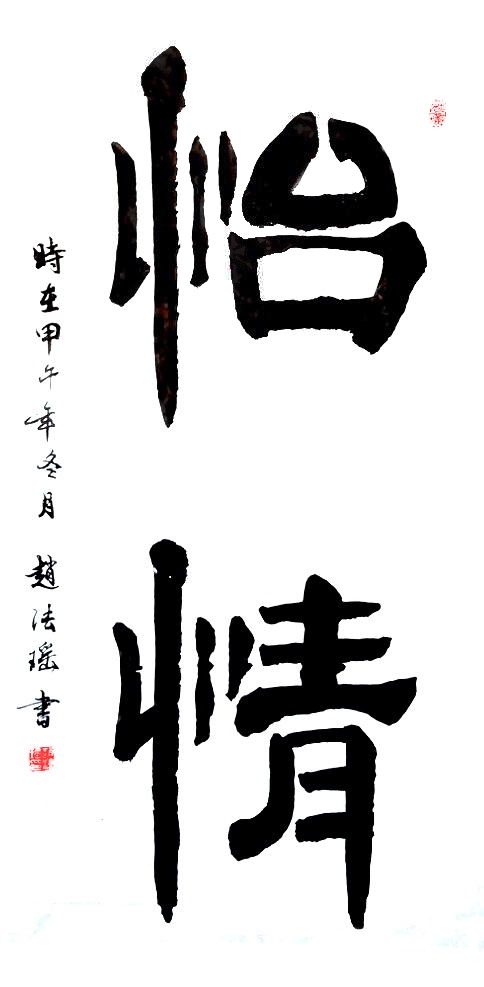 怡情
時在甲午年冬月 趙法瑶書